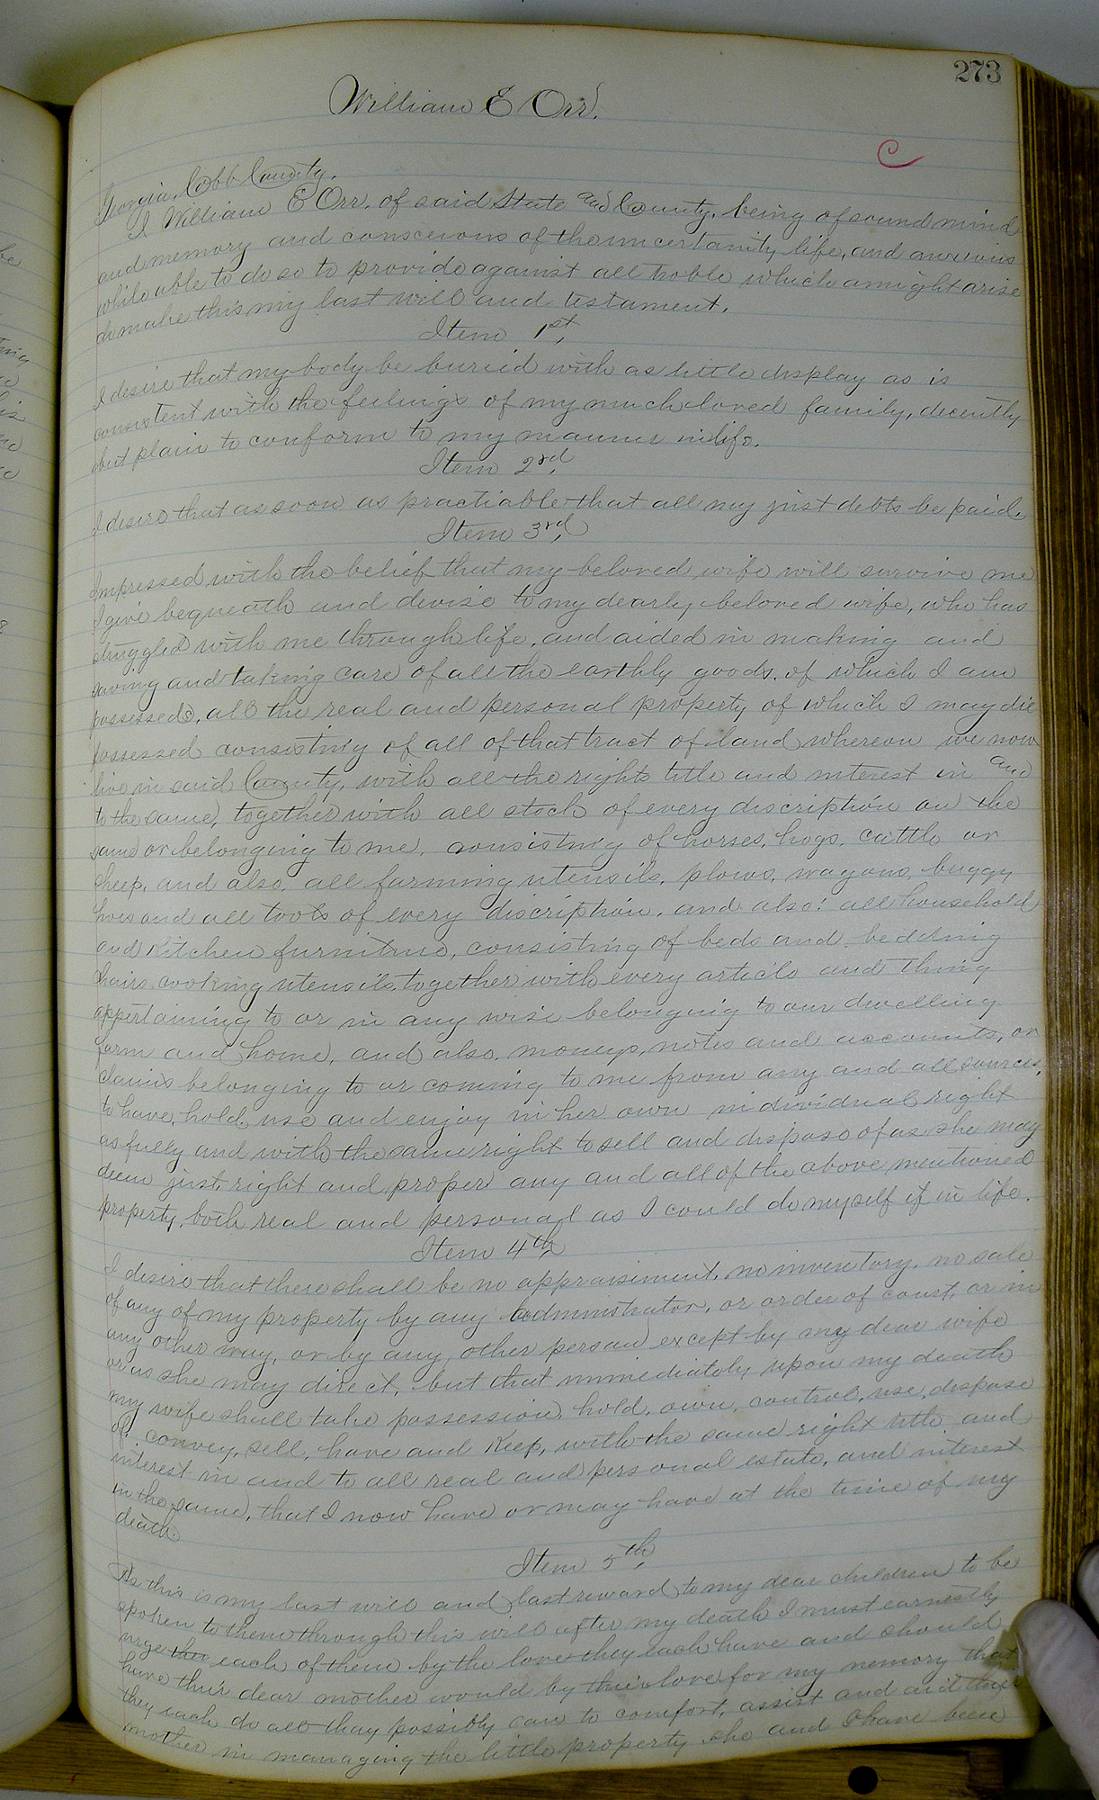 273
William E Orr.
C
Georgia, Cobb County.
I William E Orr. of said State and County, being of sound mind
and memory and conscious of the uncertainity life, and anxious
while able to do so to provide against all troble which might arise
do make this my last will and testament.
Item 1st,
I desire that my body be buried with as little display as is
consistent with the feelings of my much loved family, decently
but plain to conform to my manner in life.
Item 2rd,
I desire that as soon as practiable that all my just debts be paid.
Item 3rd,
Impressed with the belief that my beloved wife will survive me
I give bequeath and devise to my dearly beloved wife, who has
struggled with me through life, and aided in making and
saving and taking care of all the earthly goods, of which I am
possessed, all the real and personal property of which I may die
possessed consisting of all of that tract of land whereon we now
live in said County, with all the rights title and interest in and
to the same, together with all stock of every discription on the
same or belonging to me, consisting of horses, hogs, cattle or
sheep, and also, all farming utensils, plows, wagons, buggy
hoes and all tools of every discription, and also: all household
and Kitchen furniture, consisting of beds and bedding
chairs, cooking utensils, together with every article and thing
appertaining to or in any wise belonging to our dwelling
farm and home, and also, moneys, notes and accounts, or
claims belonging to or coming to me from any and all sources,
to have, hold, use and enjoy in her own individual right
as fully and with the same right to sell and dispose of as she may
deem just, right and proper any and all of the above mentioned
property, both real and personal as I could do myself if in life.
Item 4th,
I desire that there shall be no appraisiment, no inventory, no sale
of any of my property by any administrator, or order of court, or in
any other way, or by any other person except by my dear wife
or as she may direct, but that immediately upon my death
my wife shall take possession, hold, own, control, use, dispose
of, convey, sell, have and Keep, with the same right title and
interest in and to all real and personal estate, and interest
in the same, that I now have or may have at the time of my
death.
Item 5th,
As this is my last will and last reward to my dear children to be
spoken to them through this will after my death I must earnestly
urge each of them by the love they each have and should
have their dear mother would by their love for my memory that
they each do all thay possibly can to comfort, assist and aid their
mother in managing the little property she and I have been